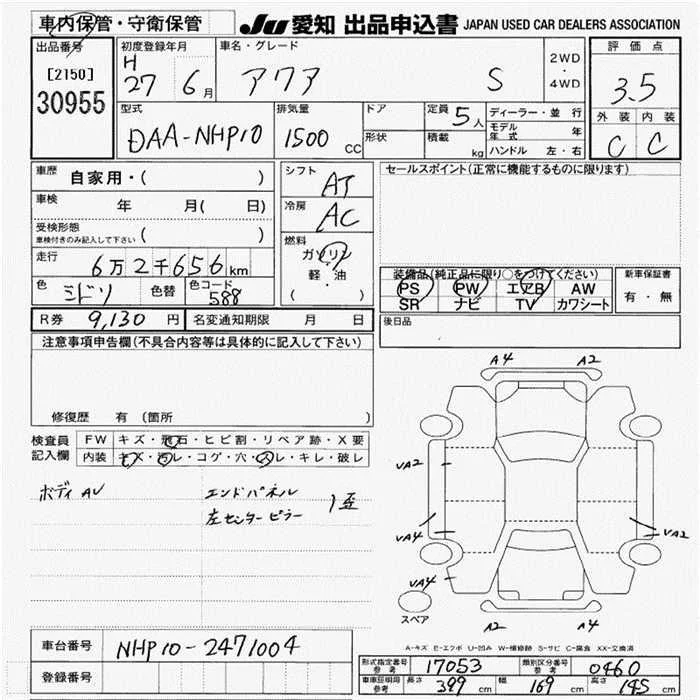 車内保管・守衛保管 JU 愛知 出品申込書 JAPAN USED CAR DEALERS ASSOCIATION
出品番号 初度登録年月 車名・グレード 2WD・4WD 評価点
[2150] H
30955 27 6月 アクア S 3.5
型式 排気量 ドア 定員 5人 ディーラー・並行 外装 内装
モデル年式 年
DAA-NHP10 1500cc 形状 積載 kg ハンドル 左・右 C C
車歴 自家用・( ) シフト AT セールスポイント(正常に機能するものに限ります)
車検 年 月( 日) 冷房 AC
受検形態
車検付きのみ記入して下さい ( )
燃料
走行 6万2千656km ガソリン
軽・油
( )
装備品(純正品に限り○をつけてください) 新車保証書
色 ミドリ 色替 色コード 588 PS PW エアB AW 有・無
SR ナビ TV カワシート
R券 9,130円 名変通知期限 月 日 後日品
注意事項申告欄(不具合内容等は具体的に記入して下さい)
A4 A2
修復歴 有 (箇所
検査員 FW キズ・飛石・ヒビ割・リペア跡・X要
記入欄 内装 キズ・汚レ・コゲ・穴・スレ・キレ・破レ
VA2
ボディ AU エンドパネル
左センターピラー 1歪
VA4 VA2
VA4
スペア
A2 A4
A-キズ E-エクボ U-凹み W-補修跡 S-サビ C-腐食 XX-交換済
車台番号 NHP10-2471004
型式指定番号 参考 17053 類別区分番号 参考 0460
登録番号
車庫証明用 参考 長さ 399cm 幅 169cm 高さ 145cm